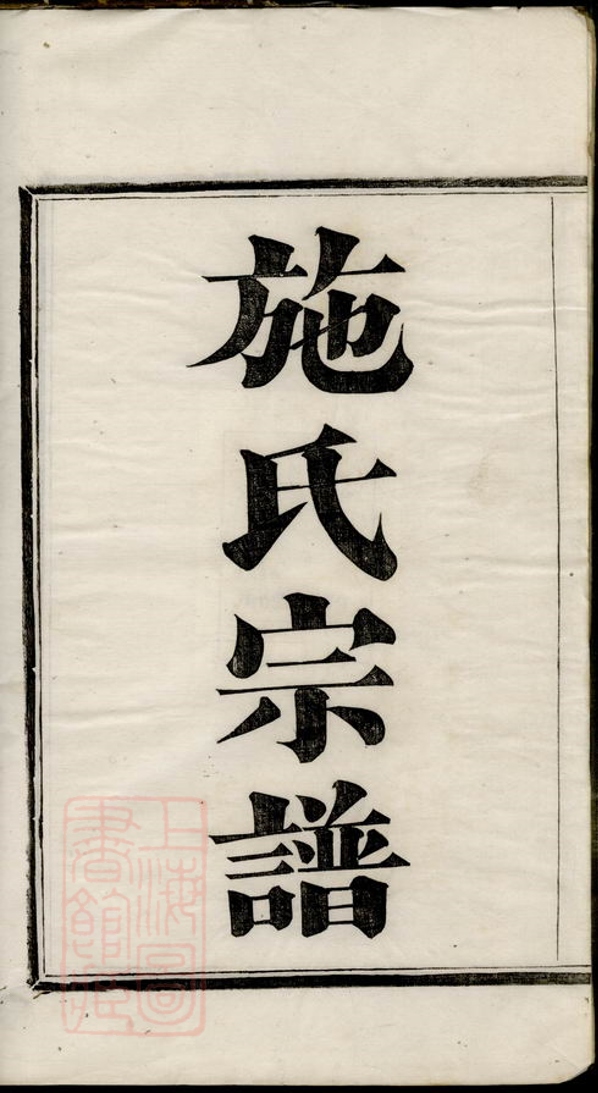 施氏宗譜
上海圖
書館藏